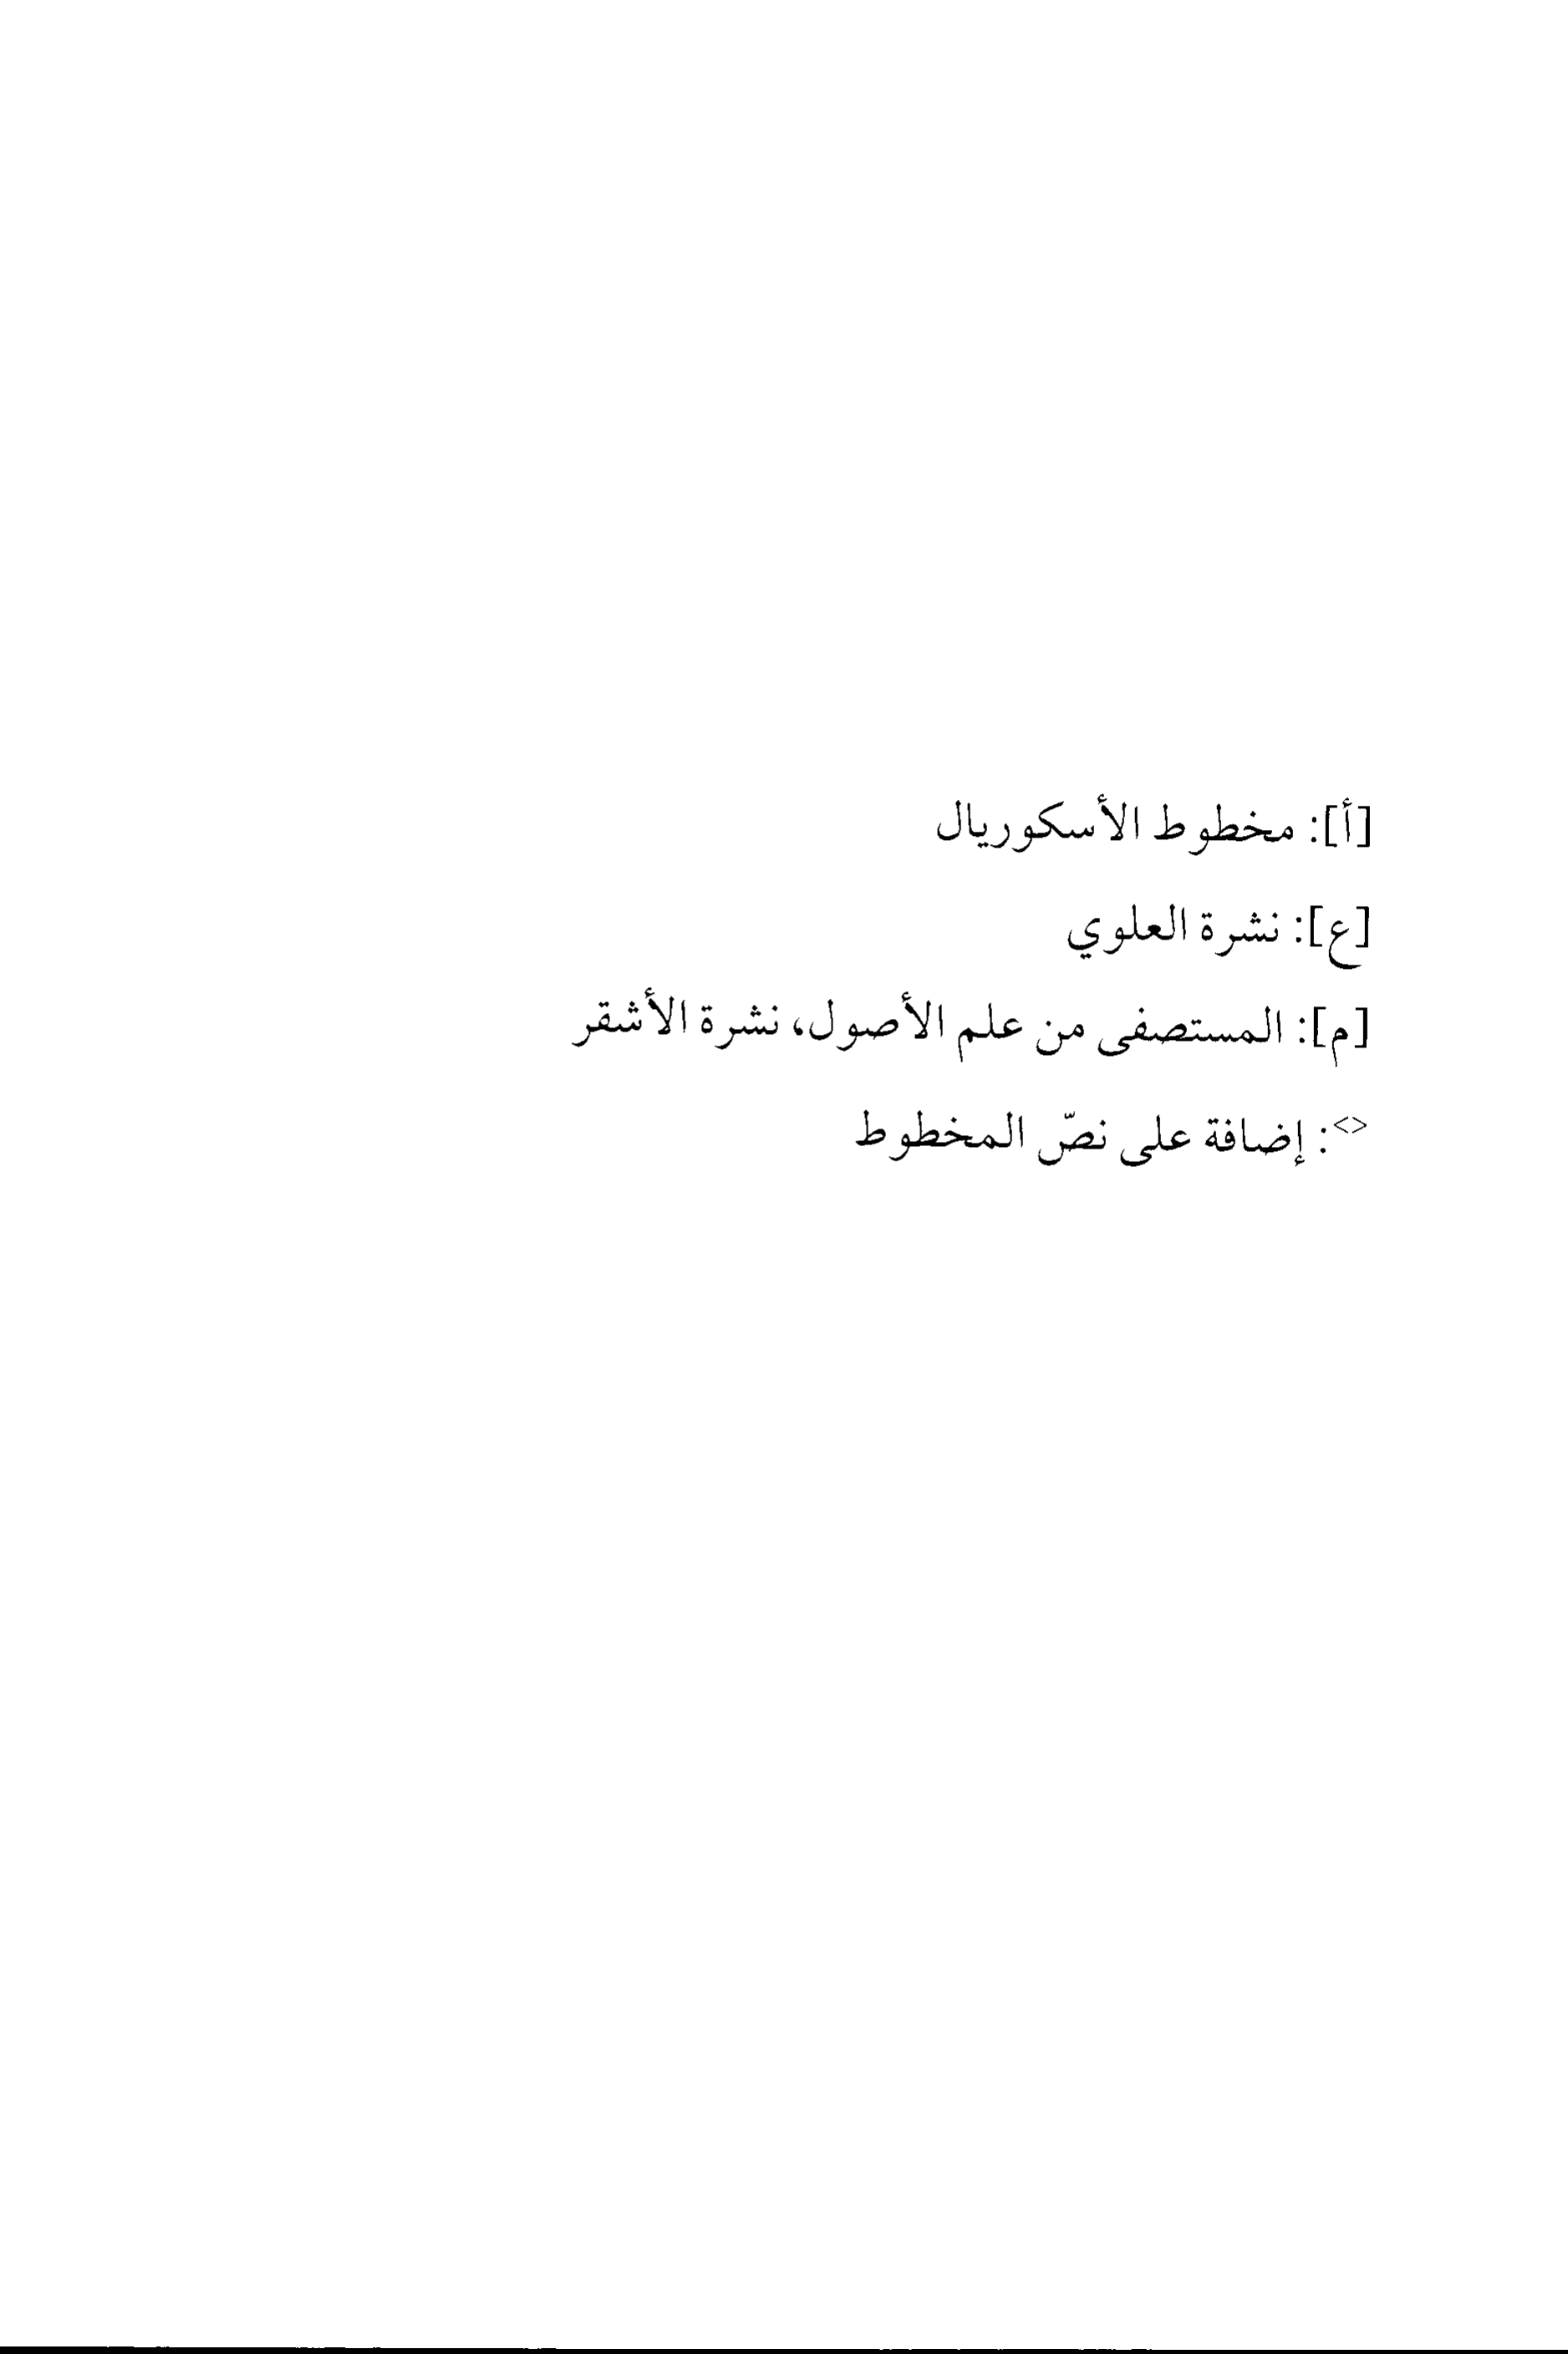 [أ]: مخطوط الأسكوريال
[ع]: نشرة العلوي
[م]: المستصفى من علم الأصول، نشرة الأشقر
<>: إضافة على نصّ المخطوط